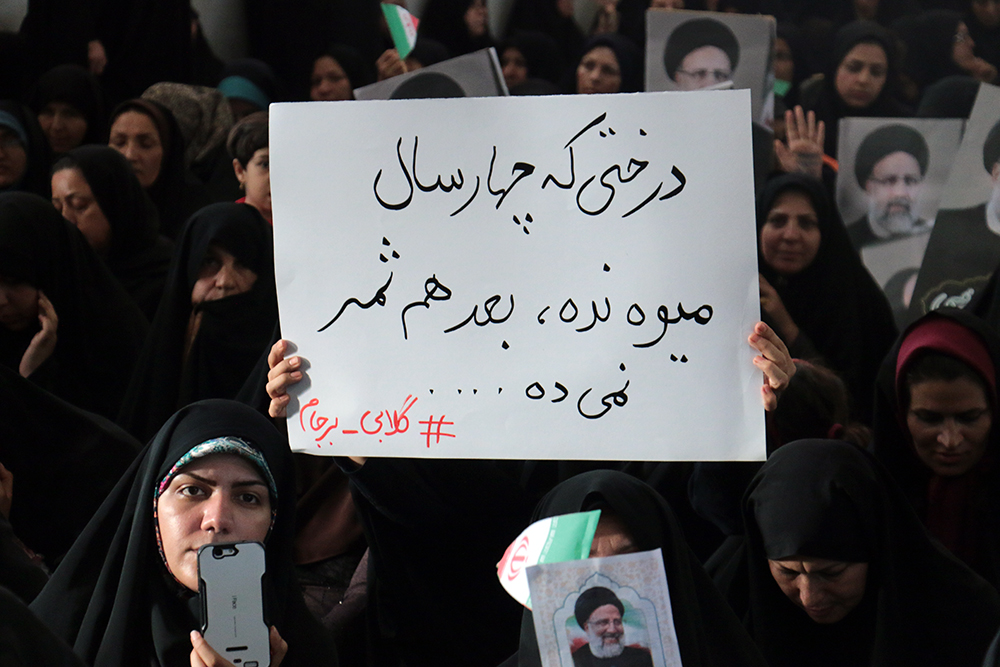 درختی که چهار سال
میوه نده، بعد هم ثمر
نمی ده ....
#گلابی_برجام